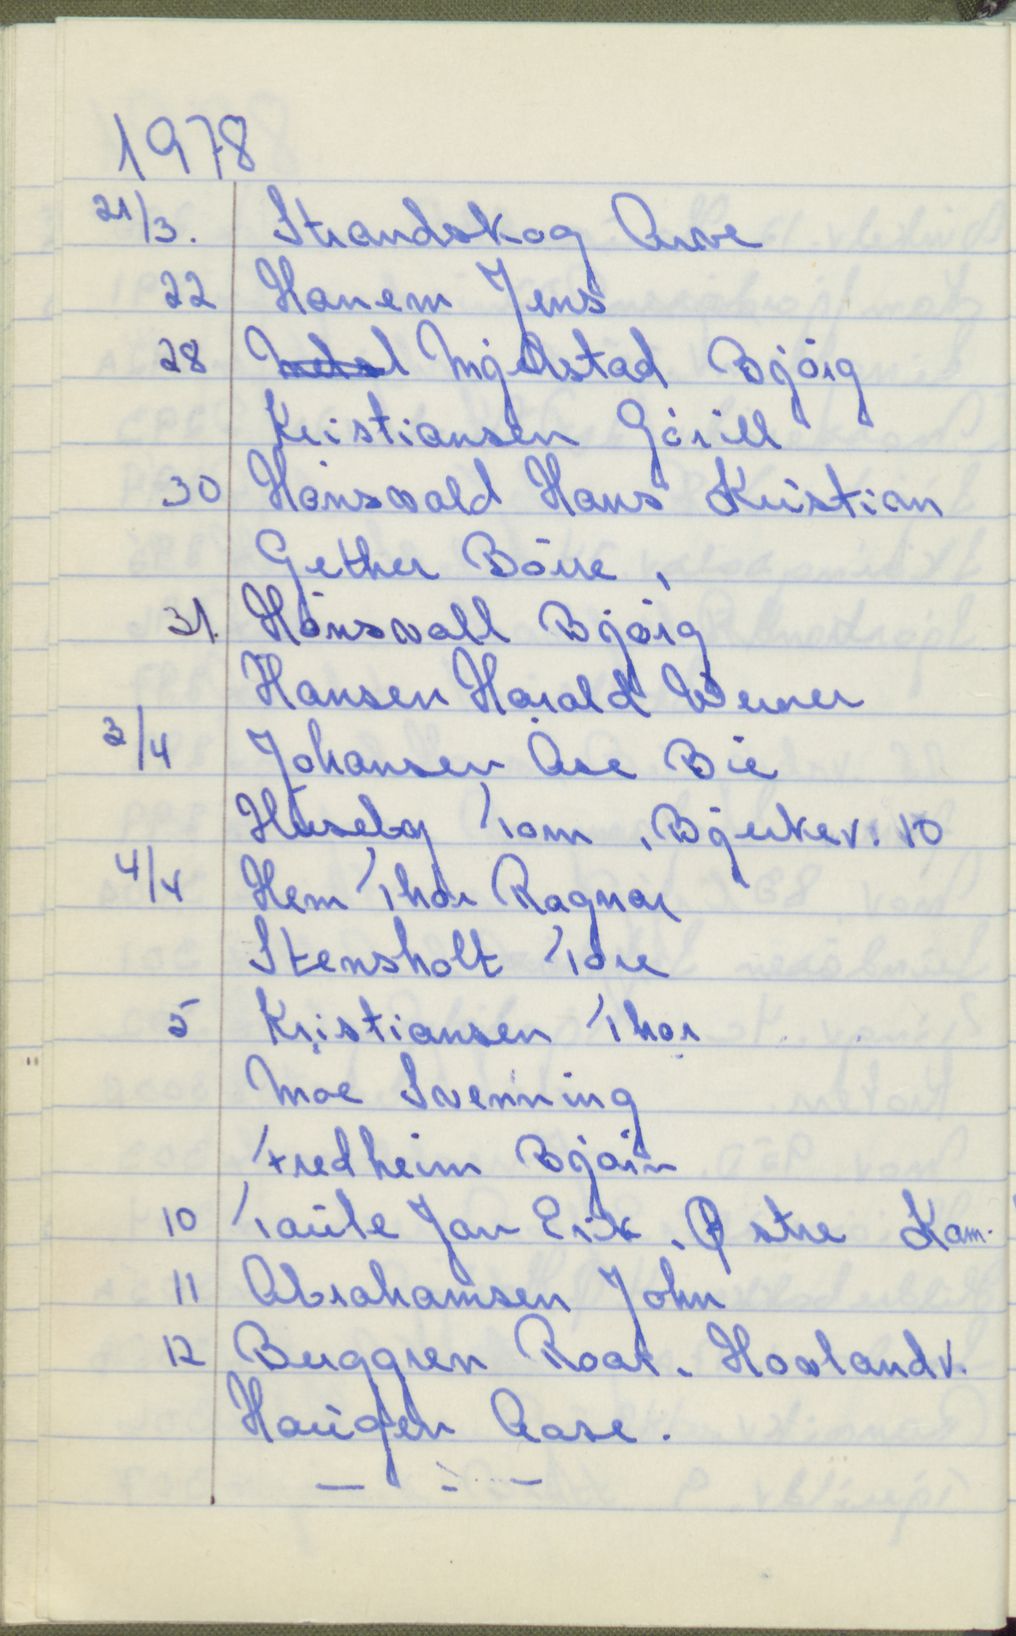 1978
21/3. Strandskog Arve
22 Hanem Jens
28 Ingelstad Bjørg
Kristiansen Gørill
30 Hønsvald Hans Kristian
Gether Børre,
31. Hønsvall Bjørg
Hansen Harald Werner
3/4 Johansen Åse Bie
Huseby Tom, Bjerkev. 10
4/4 Hem Thor Ragnar
Stensholt Tore
5 Kristiansen Thor
Moe Svenning
Fredheim Bjørn
10 Taule Jan Erik. Østre Kam-
11 Abrahamsen John
12 Berggren Roar. Hovlandv.
Haugen Aase.